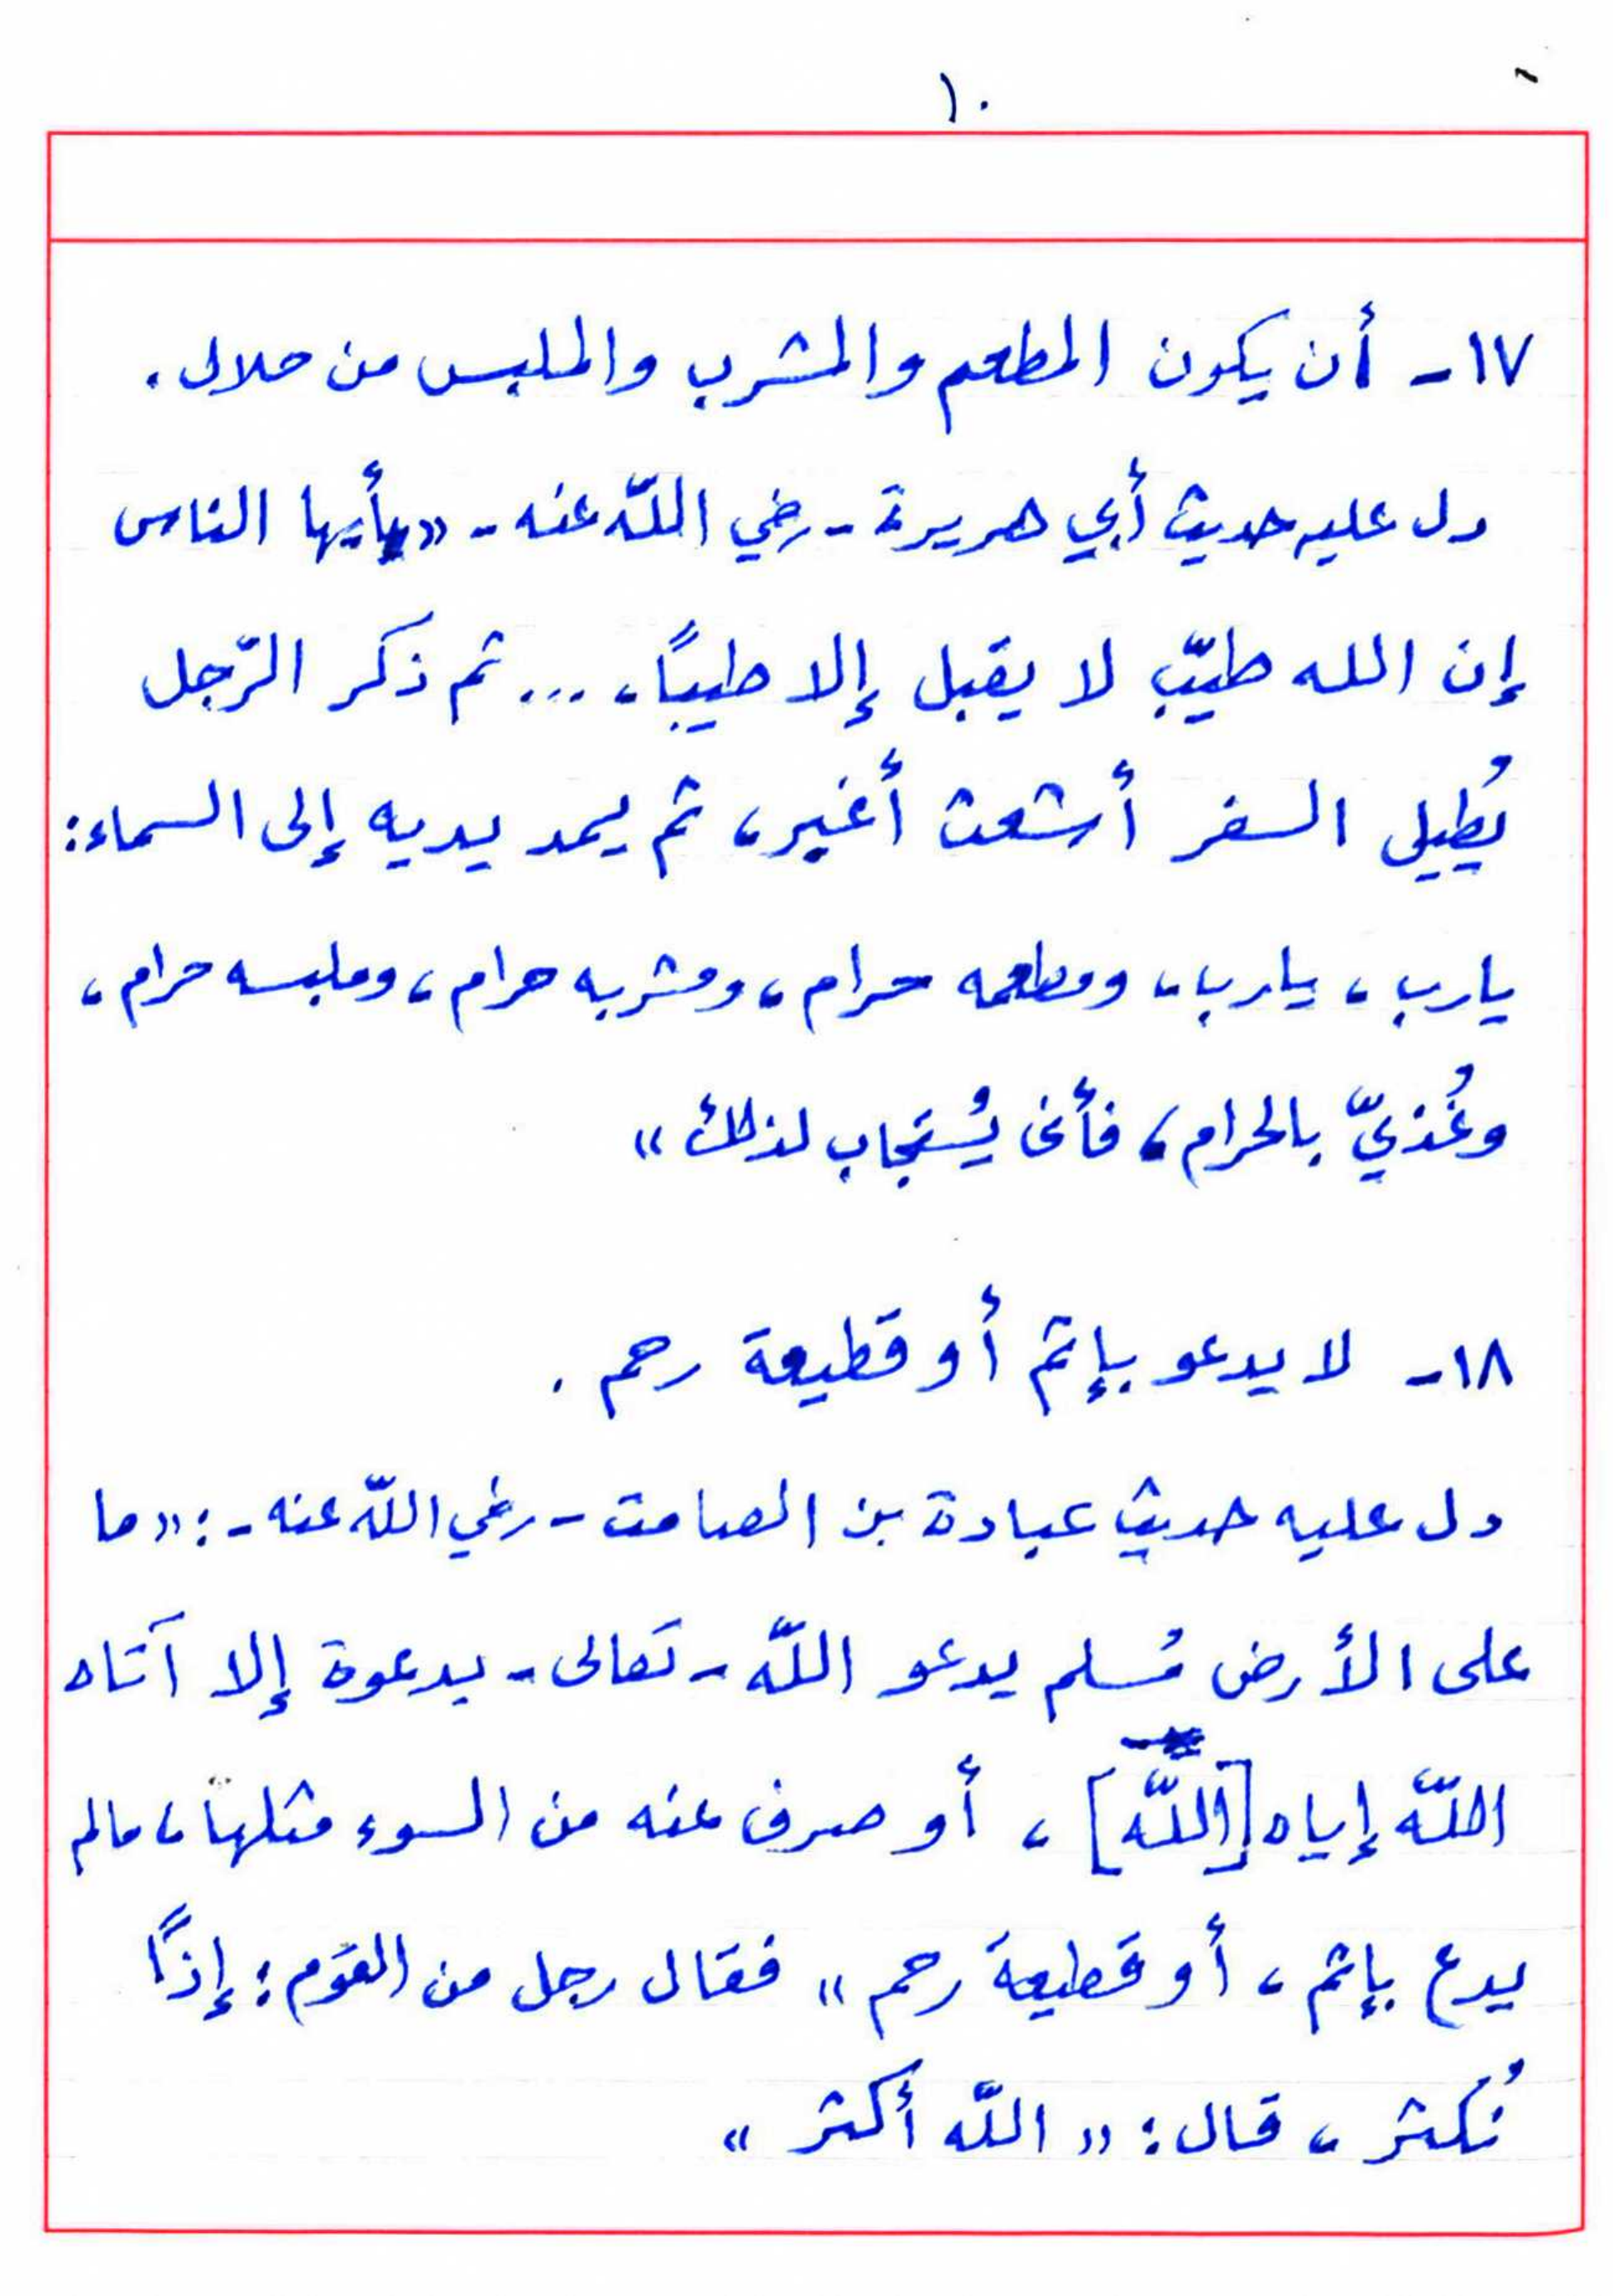 ١٠
١٧- أن يكون المطعم والمشرب والملبس من حلال.
دل عليه حديث أبي هريرة - رضي اللّه عنه - «يأيها الناس
إن الله طيّب لا يقبل إلا طيبًا، ... ثم ذكر الرّجل
يُطيل السفر أشعث أغبر، ثم يمد يديه إلى السماء:
يارب، يارب، ومطعمه حرام، ومشربه حرام، وملبسه حرام،
وغُذيّ بالحرام، فأنى يُستجاب لذلك»
١٨- لا يدعو بإثم أو قطيعة رحم.
دل عليه حديث عبادة بن الصامت - رضي اللّه عنه -: «ما
على الأرض مُسلم يدعو اللّه - تعالى - بدعوة إلا آتاه
اللّه إياه [اللّه]، أو صرف عنه من السوء مثلها، مالم
يدع بإثم، أو قطيعة رحم» فقال رجل من القوم: إذًا
نُكثر، قال: «اللّه أكثر»